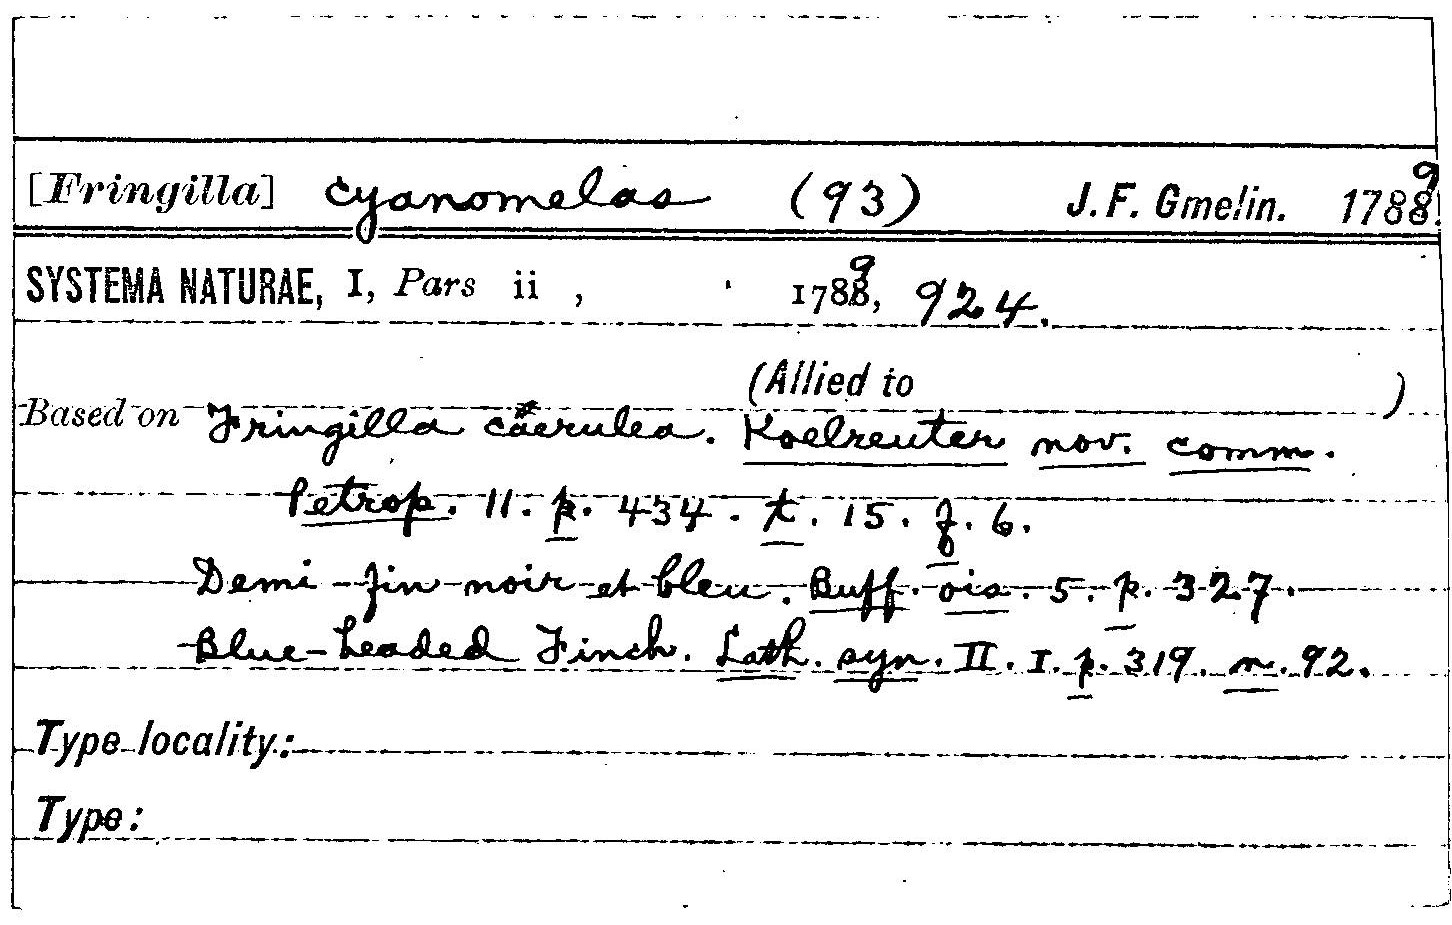 [Fringilla] cyanomelas (93) J. F. Gmelin. 1789
SYSTEMA NATURAE, I, Pars ii , 1789, 924.
(Allied to )
Based on Fringilla caerulea. Koelreuter nov. comm.
Petrop. 11. p. 434. t. 15. f. 6.
Demi-fin noir et bleu. Buff. ois. 5. p. 327.
Blue-headed Finch. Lath. syn. II. I. p. 319. n. 92.
Type locality:
Type: